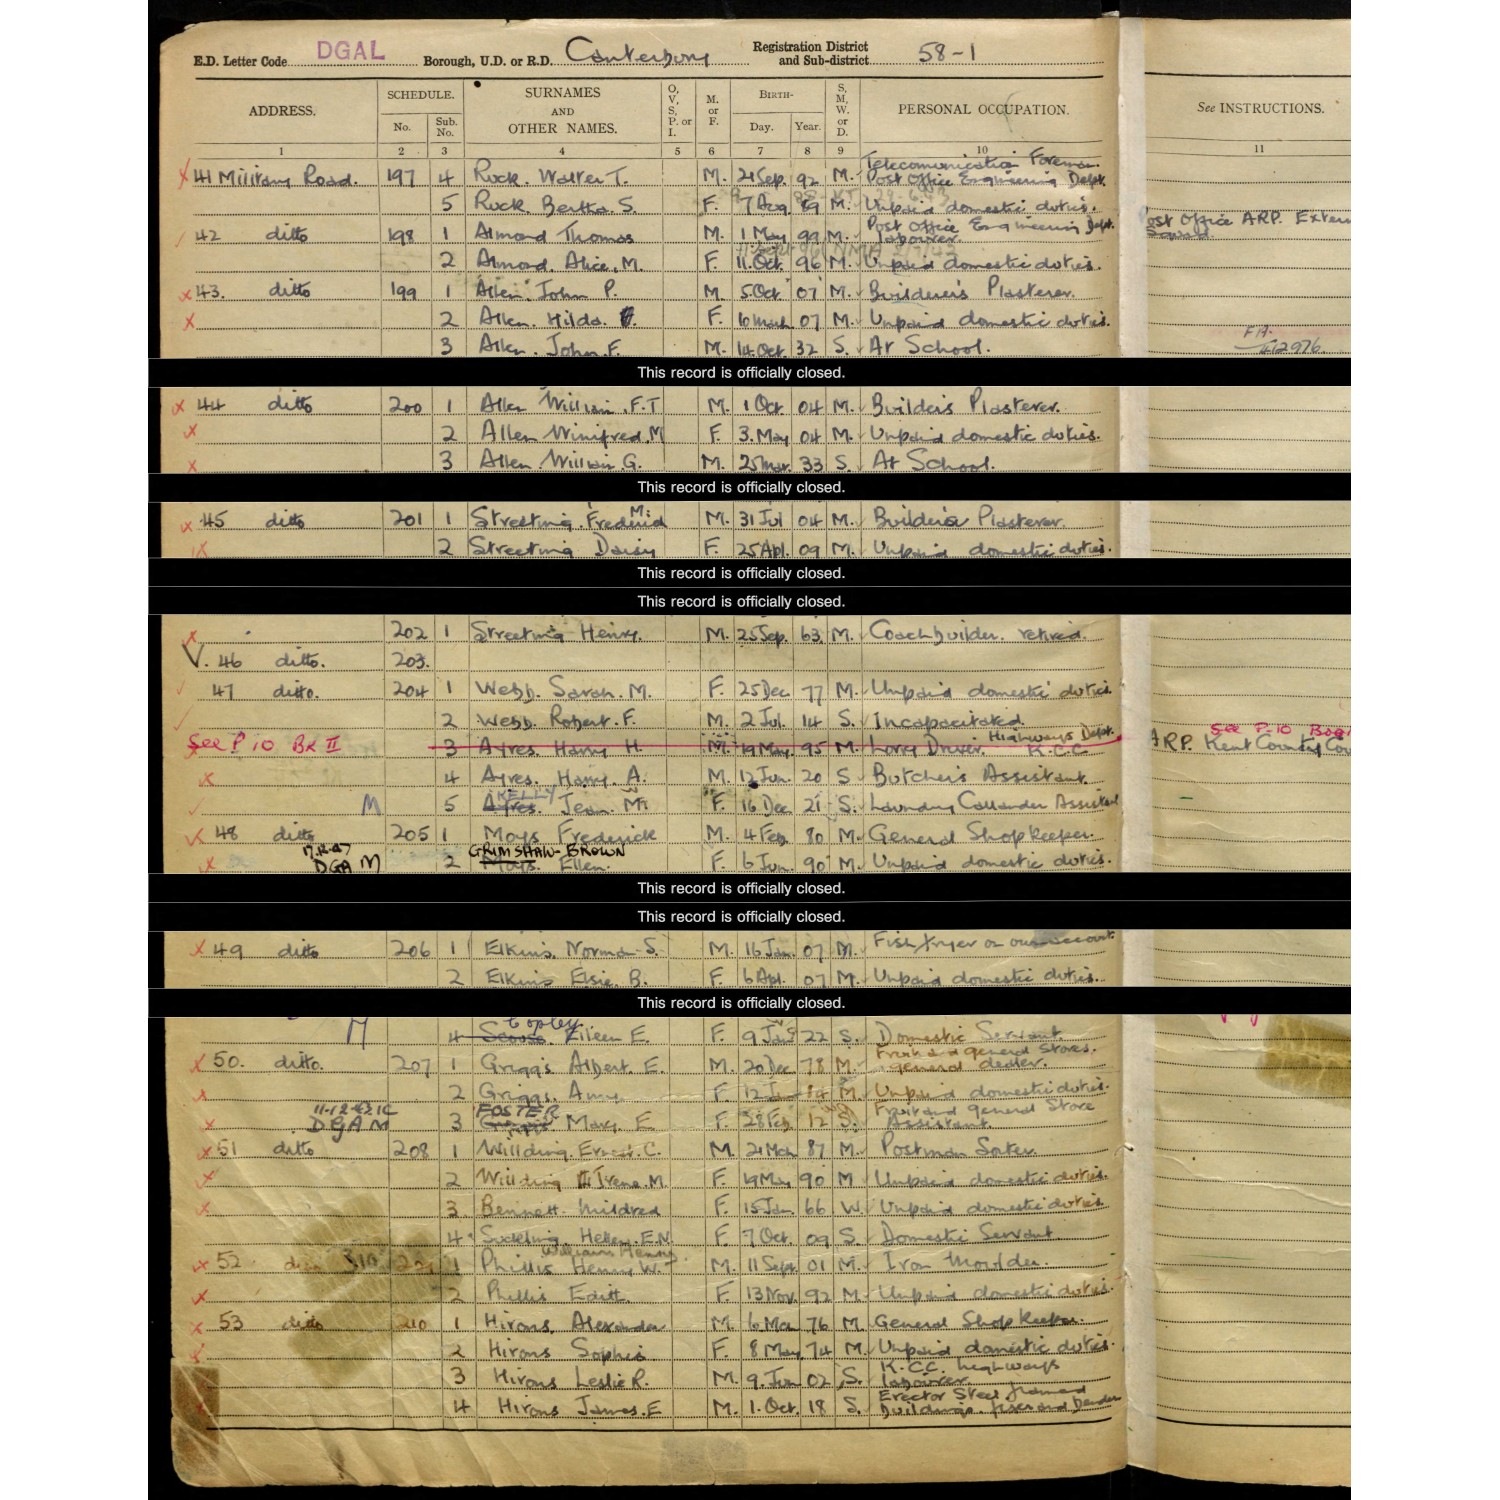 E.D. Letter Code DGAL Borough, U.D. or R.D. Canterbury Registration District and Sub-district 58-1
ADDRESS. SCHEDULE. No. Sub. No. SURNAMES AND OTHER NAMES. O, V, S, P. or I. M. or F. BIRTH- Day. Year. S, M, W. or D. PERSONAL OCCUPATION. See INSTRUCTIONS.
1 2 3 4 5 6 7 8 9 10 11
41 Military Road. 197 4 Ruck. Walter T. M. 21 Sep. 92 M. Telecomunication Foreman. Post Office Engineering Dept.
5 Ruck. Bertha. S. F. 7 Aug. 89 M. Unpaid domestic duties. Post Office ARP. Extern Squad.
42 ditto 198 1 Almond Thomas M. 1 May 99 M. Post Office Engineering Dept. labourer.
2 Almond. Alice. M. F. 11. Oct. 96 M. Unpaid domestic duties.
43. ditto 199 1 Allen. John P. M. 5 Oct 07 M. Builder's Plasterer.
2 Allen. Hilda F. 16 March. 07 M. Unpaid domestic duties.
3 Allen. John. F. M. 14 Oct 32 S. At School. 
This record is officially closed.
44 ditto 200 1 Allen William. F. T M. 1 Oct 04 M. Builder's Plasterer.
2 Allen Winifred. M F. 3. May 04 M. Unpaid domestic duties.
3 Allen. William. G. M. 25 Mar. 33 S. At School.
This record is officially closed.
45 ditto 201 1 Streeting. Frederick M. M. 31 Jul 04 M. Builder's Plasterer.
2 Streeting Daisy F. 25 Apl. 09 M. Unpaid domestic duties.
This record is officially closed.
This record is officially closed.
202 1 Streeting Henry. M. 25 Sep. 63 M. Coachbuilder. retired.
V. 46 ditto. 203.
47 ditto. 204 1 Webb. Sarah. M. F. 25 Dec 77 M. Unpaid domestic duties.
2 Webb. Robert. F. M. 2 Jul. 14 S. Incapacitated.
See P 10 BK II 3 Ayres. Harry H. M. 19 May. 95 M. Lorry Driver. Highways Dept. K.C.C. See P. 10 Book A.R.P. Kent County Cou
4 Ayres. Harry. A. M. 12 Jun. 20 S. Butcher's Assistant.
M 5 Ayres. KELLY Jean. M. F. 16 Dec 21 S. Laundry Callander Assistant
48 ditto 205 1 Moys Frederick M. 4 Feb. 80 M. General Shopkeeper.
DGA M 2 Moys. GRIMSHAW-BROWN Ellen. F. 6 Jun. 90 M. Unpaid domestic duties.
This record is officially closed.
This record is officially closed.
49 ditto 206 1 Elkins. Norman. S. M. 16 Jan. 07 M. Fish fryer on own account.
2 Elkins Elsie. B. F. 6 Apl. 07 M. Unpaid domestic duties.
This record is officially closed.
M 4 Copley Eileen E. F. 9 22 S. Domestic Servant
50. ditto. 207 1 Griggs Albert. E. M. 20 Dec 78 M. Fruit and general Stores. general dealer.
2 Griggs. Amy F. 12 M. Unpaid domestic duties.
11-12-42 DGA M 3 FOSTER Mary. E F. 28 Feb. 12 S. Fruit and general Store Assistant.
51 ditto 208 1 Willding. Ernest. C. M. 21 Mch 87 M. Postman Sorter.
2 Willding Irene. M. F. 19 May 90 M Unpaid domestic duties.
3. Bennett. Mildred F. 15 Jan 66 W. Unpaid domestic duties
4. Suckling. Helen. E.N. F. 7 Oct. 09 S. Domestic Servant
52 1 Phillis Henry. W. William Henry M. 11 Sept. 01 M. Iron Moulder.
2 Phillis Edith. F. 13 Nov. 92 M. Unpaid domestic duties.
53 ditto 210 1 Hirons. Alexander M. 6 Mch 76 M. General Shop Keeper.
2 Hirons Sophia F. 8 May. 74 M. Unpaid domestic duties.
3 Hirons Leslie R. M. 9. Jun 02 S. K.C.C. highways labourer.
4 Hirons James. E M. 1. Oct. 18 S. Erector Steel framed buildings.